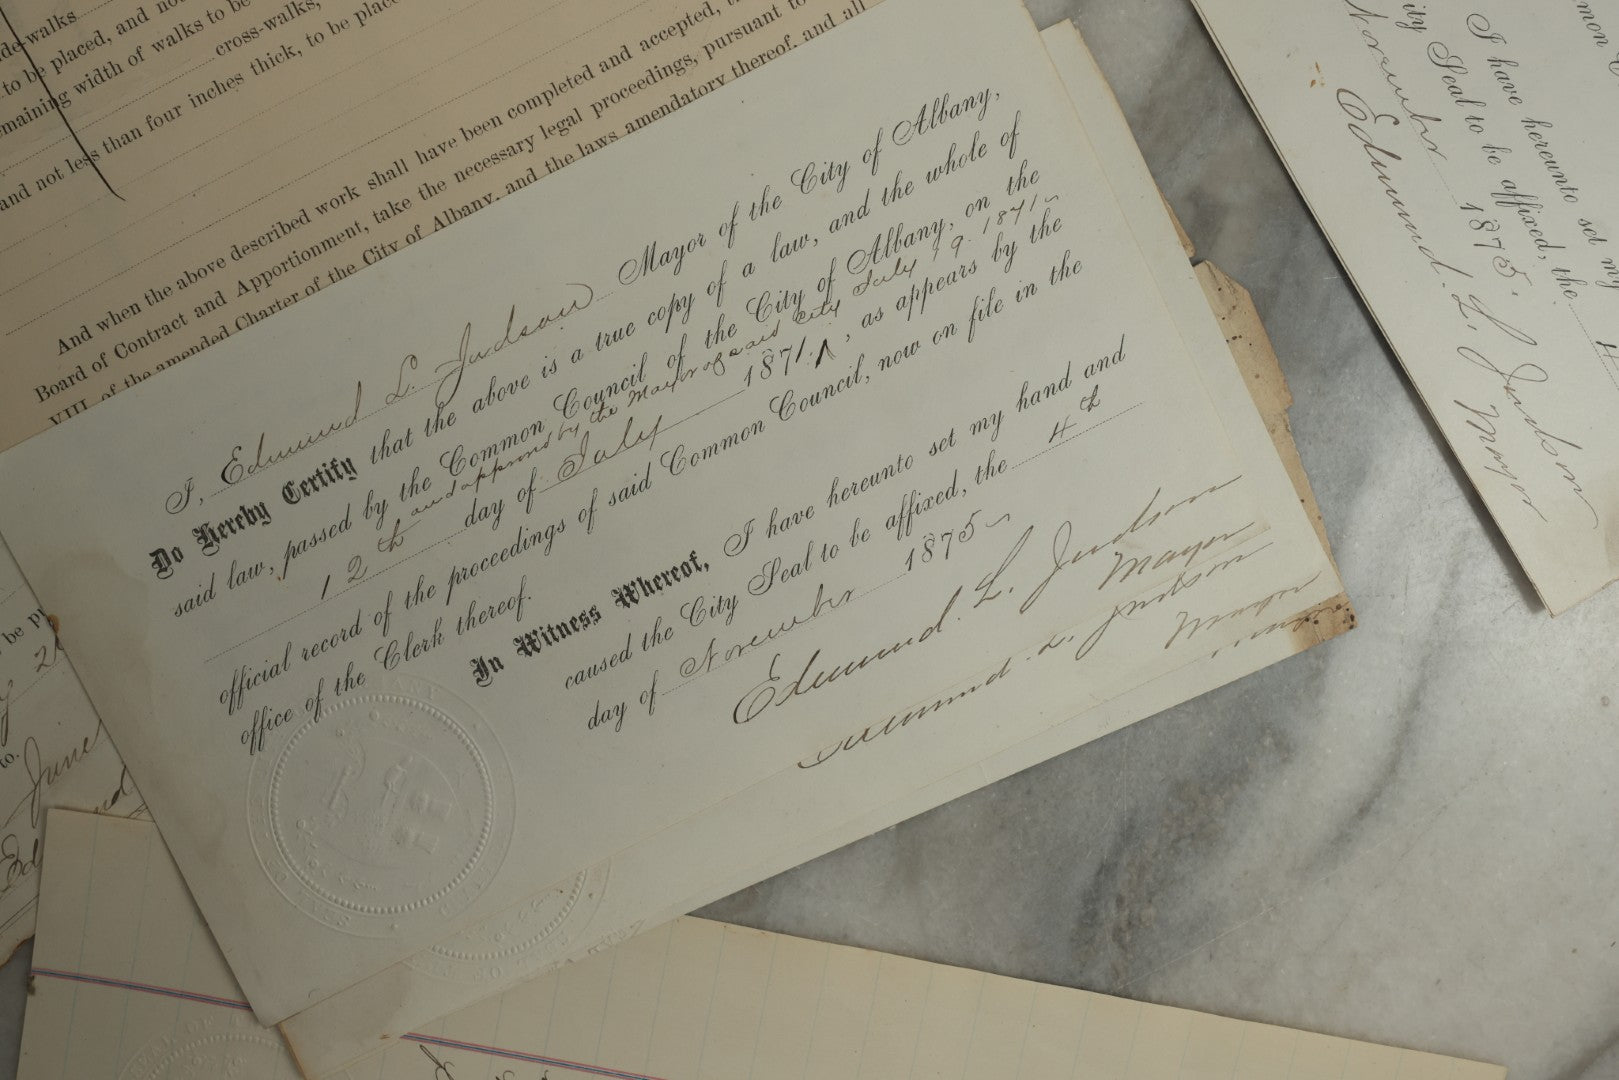 de-walks
to be placed, and not
remaining width of walks to be
cross-walks,
and not less than four inches thick, to be place
And when the above described work shall have been completed and accepted,
Board of Contract and Apportionment, take the necessary legal proceedings, pursuant to
VIII. of the amended Charter of the City of Albany, and the laws amendatory thereof, and all
I, Edmund L. Judson Mayor of the City of Albany,
Do Hereby Certify that the above is a true copy of a law, and the whole of
said law, passed by the Common Council of the City of Albany, on the
and approved by the Mayor of said City July 19. 1871
12th day of July 1871, as appears by the
official record of the proceedings of said Common Council, now on file in the
office of the Clerk thereof.
In Witness Whereof, I have hereunto set my hand and
caused the City Seal to be affixed, the 4th
day of November 1875
Edmund L. Judson
Mayor
Judson
Mayor
I have hereunto set my
ity Seal to be affixed, the 4
November 1875.
Edmund L. Judson
Mayor
be
June
Ed